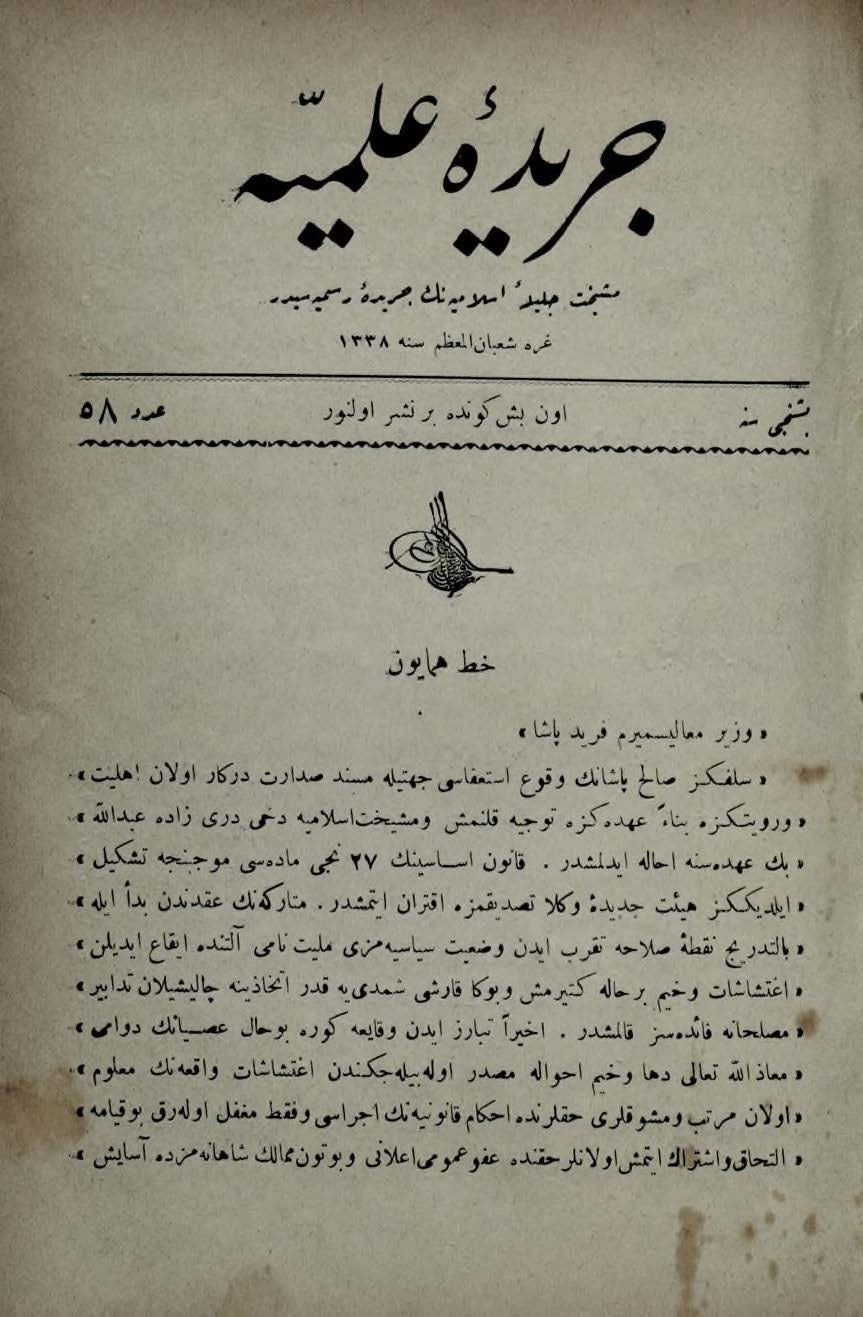 جريدهٔ علميّه
مشيخت جليلهٔ اسلاميه‌نك جريدهٔ رسميه‌سيدر
غره شعبان‌المعظم سنه ١٣٣٨
بشنجى سنه
اون بش كونده بر نشر اولنور
عدد ٥٨
خط همايون
« وزير معاليسميرم فريد پاشا »
« سلفكز صالح پاشانك وقوع استعفاسى جهتيله مسند صدارت دركار اولان اهليت »
« ورويتكزه بناءً عهده‌كزه توجيه قلنمش ومشيخت اسلاميه دخى درى زاده عبدالله »
« بك عهده‌سنه احاله ايدلمشدر . قانون اساسينك ٢٧ نجى ماده‌سى موجبنجه تشكيل »
« ايلديككز هيئت جديدهٔ وكلا تصديقمزه اقتران ايتمشدر . متاركه‌نك عقدندن بدأ ايله »
« بالتدريج نقطهٔ صلاحه تقرب ايدن وضعيت سياسيه‌مزى مليت نامى آلتنده ايقاع ايديلن »
« اغتشاشات وخيم برحاله كتيرمش وبوكا قارشى شمدى‌يه قدر اتخاذينه چاليشيلان تدابير »
« مصلحانه فائده‌سز قالمشدر . اخيراً تبارز ايدن وقايعه كوره بوحال عصيانك دوامى »
« معاذ الله تعالى دها وخيم احواله مصدر اوله‌بيله‌جكندن اغتشاشات واقعه‌نك معلوم »
« اولان مرتب ومشوقلرى حقلرنده احكام قانونيه‌نك اجراسى وفقط مغفل اوله‌رق بوقيامه »
« التحاق واشتراك ايتمش اولانلر حقنده عفو عمومى اعلانى وبوتون ممالك شاهانه‌مزده آسايش »